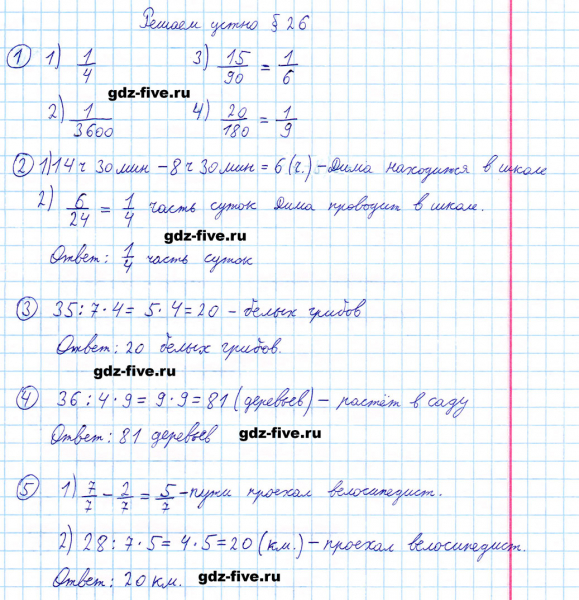 Решаем устно § 26
① 1) 1/4 3) 15/90 = 1/6
gdz-five.ru
2) 1/3600 4) 20/180 = 1/9
② 1) 14 ч 30 мин - 8 ч 30 мин = 6 (ч.) - Дима находится в школе
2) 6/24 = 1/4 часть суток Дима проводит в школе.
gdz-five.ru
Ответ: 1/4 часть суток
③ 35 : 7 · 4 = 5 · 4 = 20 - белых грибов
Ответ: 20 белых грибов.
gdz-five.ru
④ 36 : 4 · 9 = 9 · 9 = 81 (деревьев) - растёт в саду
Ответ: 81 деревьев gdz-five.ru
⑤ 1) 7/7 - 2/7 = 5/7 - пути проехал велосипедист.
2) 28 : 7 · 5 = 4 · 5 = 20 (км.) - проехал велосипедист.
Ответ: 20 км. gdz-five.ru